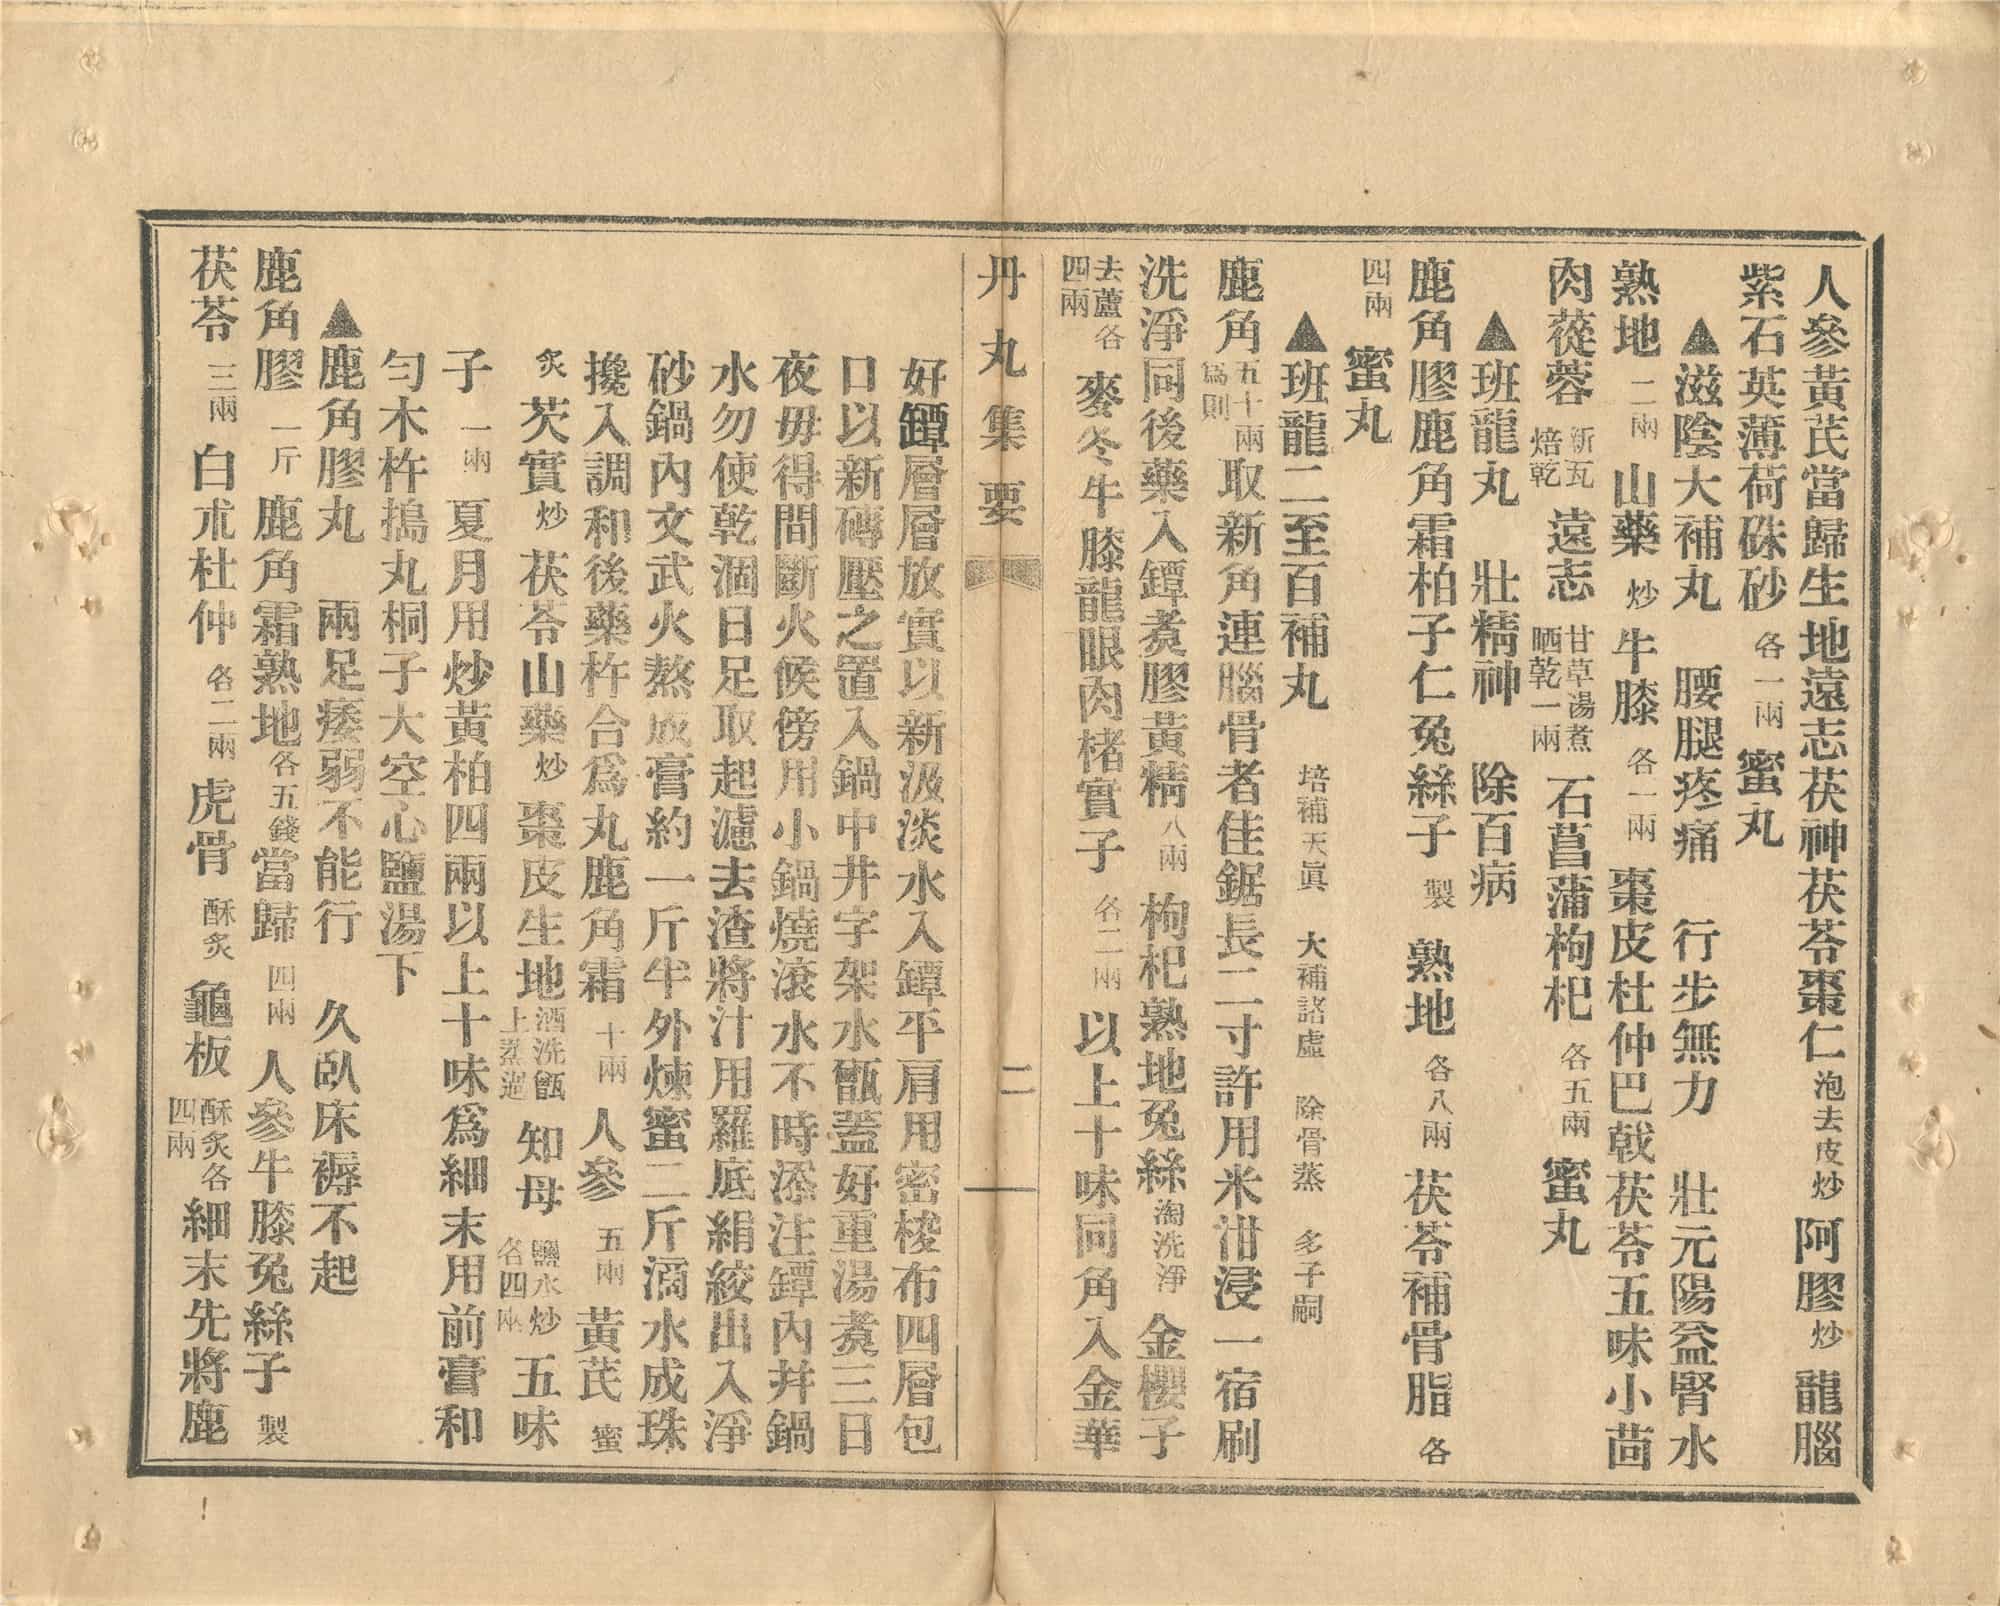 人參黃芪當歸生地遠志茯神茯苓棗仁泡去皮炒阿膠炒龍腦
紫石英薄荷硃砂各一兩蜜丸
▲滋陰大補丸　腰腿疼痛　行步無力　壯元陽益腎水
熟地二兩山藥炒牛膝各一兩棗皮杜仲巴戟茯苓五味小茴
肉蓯蓉新瓦焙乾遠志甘草湯煮晒乾一兩石菖蒲枸杞各五兩蜜丸
▲班龍丸　壯精神　除百病
鹿角膠鹿角霜柏子仁兔絲子製熟地各八兩茯苓補骨脂各
四兩蜜丸
▲班龍二至百補丸　培補天眞　大補諸虛　除骨蒸　多子嗣
鹿角五十兩爲則取新角連腦骨者佳鋸長二寸許用米泔浸一宿刷
洗淨同後藥入罈煮膠黃精八兩枸杞熟地兔絲淘洗淨金櫻子
去蘆各四兩麥冬牛膝龍眼肉楮實子各二兩以上十味同角入金華
丹丸集要　二
好罈層層放實以新汲淡水入罈平肩用密梭布四層包
口以新磚壓之置入鍋中井字架水甑蓋好重湯煮三日
夜毋得間斷火候傍用小鍋燒滾水不時添注罈內幷鍋
水勿使乾涸日足取起濾去渣將汁用羅底絹絞出入淨
砂鍋內文武火熬成膏約一斤半外煉蜜二斤滴水成珠
攙入調和後藥杵合爲丸鹿角霜十兩人參五兩黃芪蜜
炙芡實炒茯苓山藥炒棗皮生地酒洗甑上蒸過知母鹽水炒各四兩五味
子一兩夏月用炒黃柏四兩以上十味爲細末用前膏和
勻木杵搗丸桐子大空心鹽湯下
▲鹿角膠丸　兩足痿弱不能行　久臥床褥不起
鹿角膠一斤鹿角霜熟地各五錢當歸四兩人參牛膝兔絲子製
茯苓三兩白朮杜仲各二兩虎骨酥炙龜板酥炙各四兩細末先將鹿